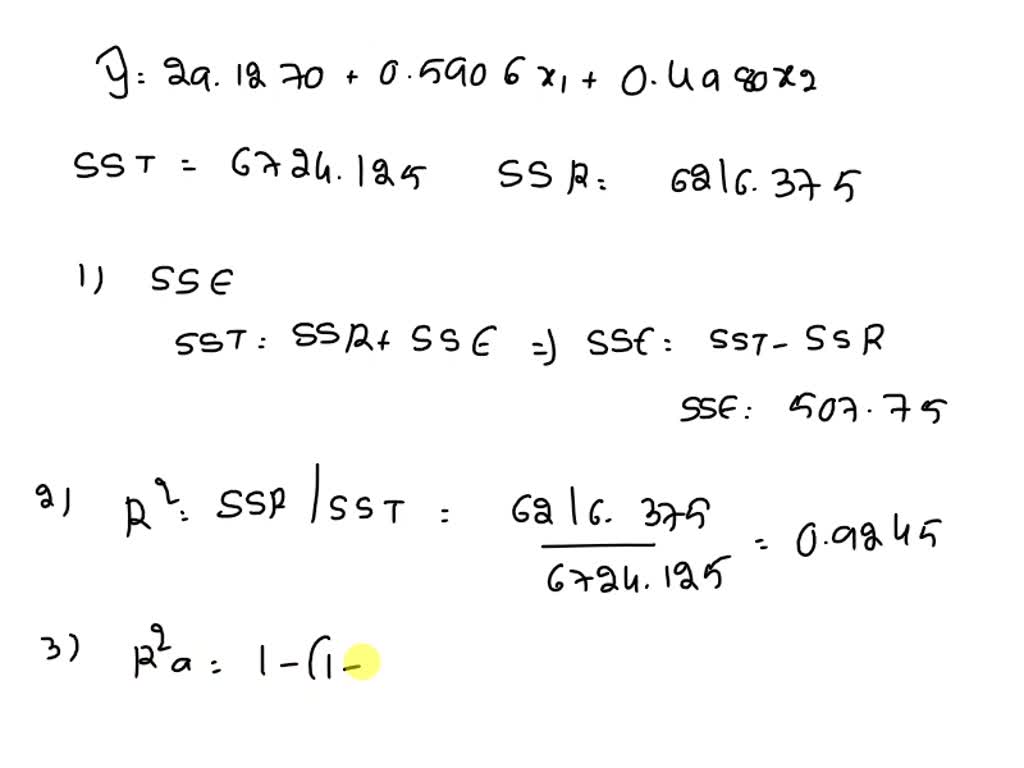 ŷ: 29.1270 + 0.5906 x₁ + 0.4980x₂
SST = 6724.125 SSR: 6216.375
1) SSE
SST: SSR + SSE => SSE: SST - SSR
SSE: 507.75
2) R²: SSR / SST = 6216.375 / 6724.125 = 0.9245
3) R²a: 1 - (1 -